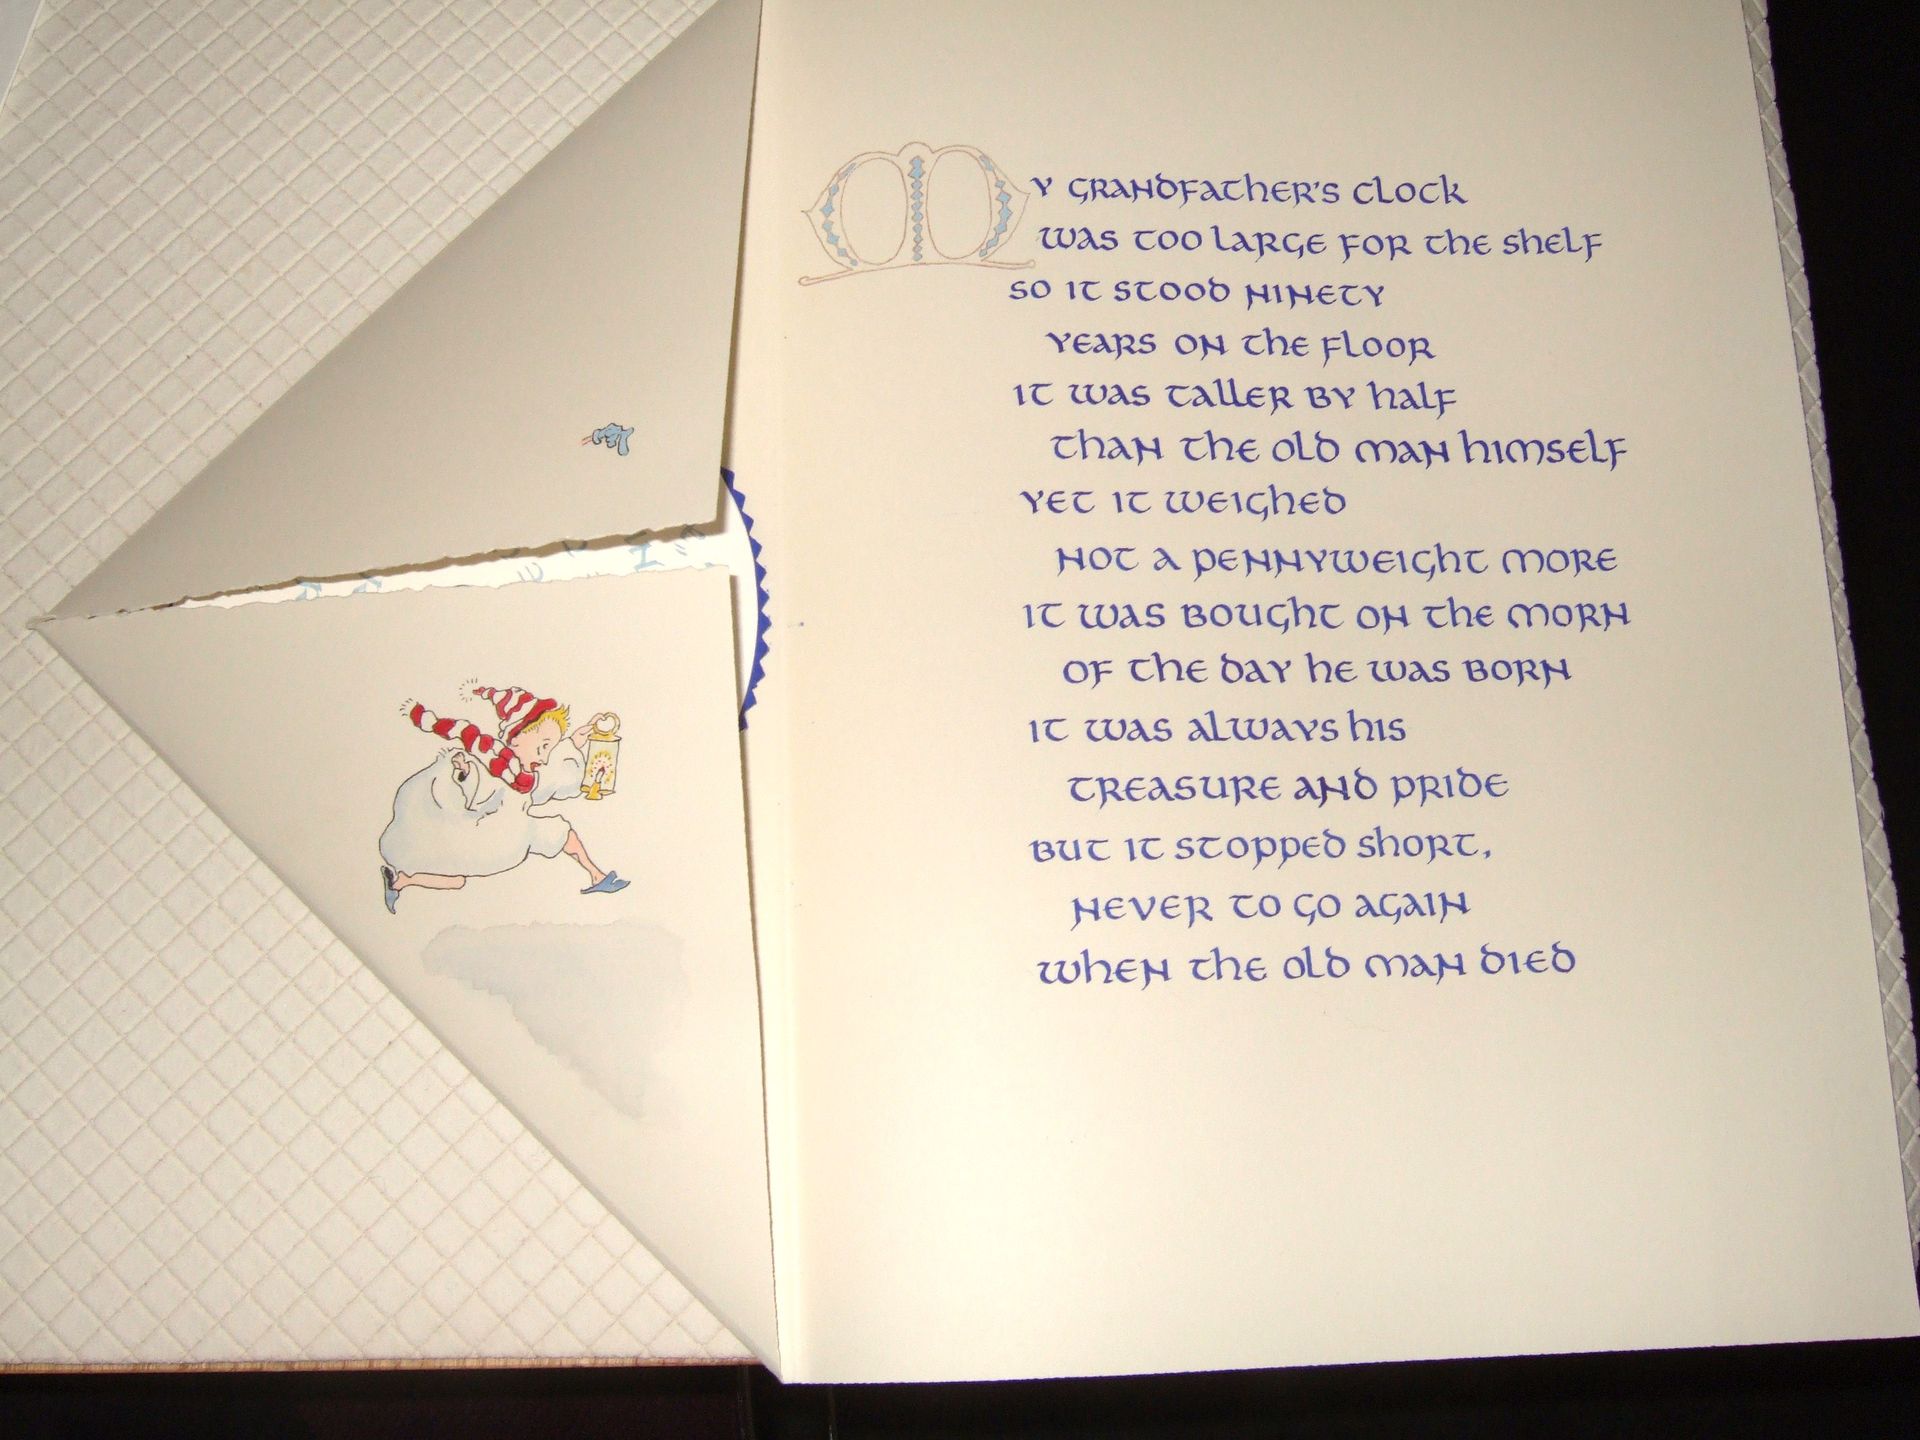 My grandfather's clock
was too large for the shelf
so it stood ninety
years on the floor
it was taller by half
than the old man himself
yet it weighed
not a pennyweight more
it was bought on the morn
of the day he was born
it was always his
treasure and pride
but it stopped short,
never to go again
when the old man died